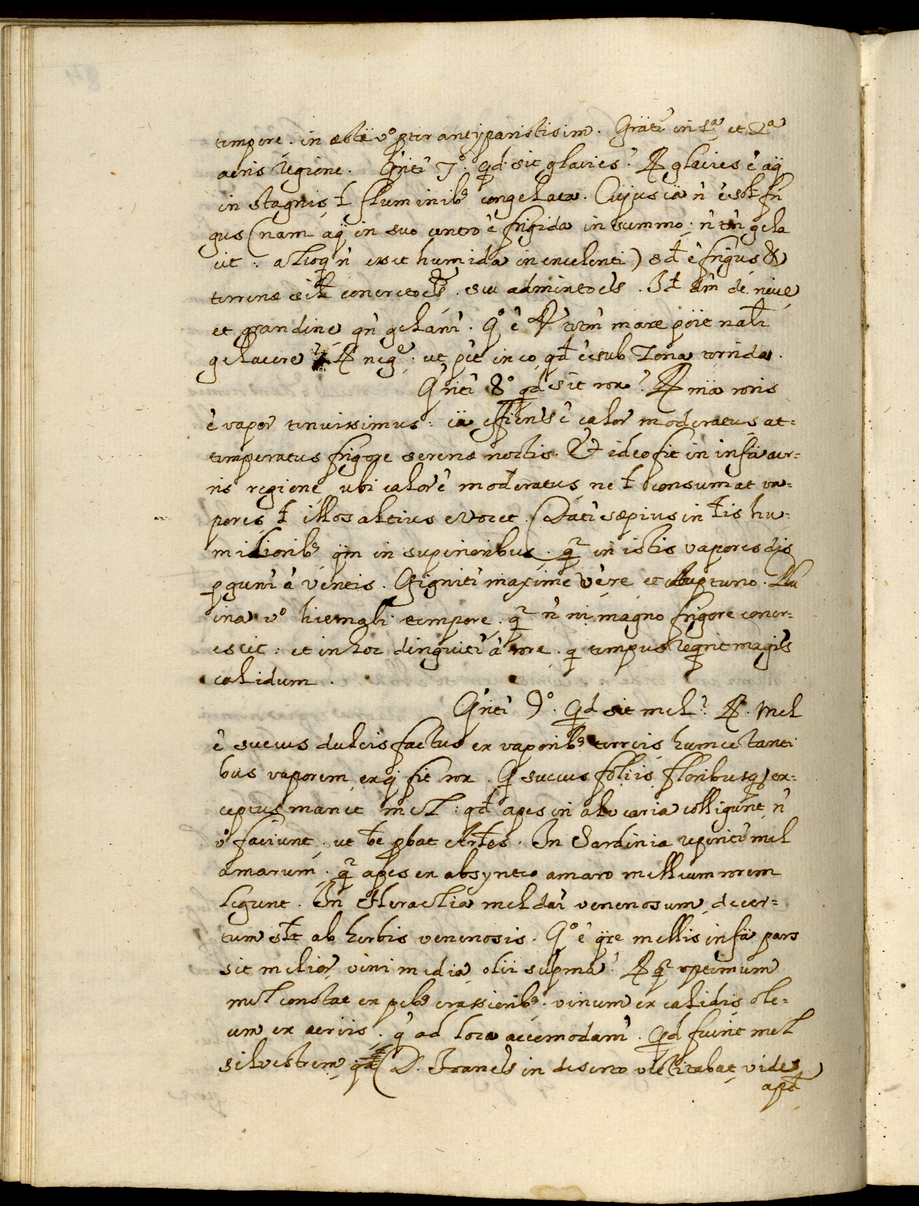 tempore. in æstē v° ptr antiparistisim. Gratī in 1ª et 2ª
aeris regione. Qritī 7°. qd sit glacies? R glacies ē aq̄
in stagnis ł fluminibꝰ congelata. Cujus cā ñ ē sol fri
gus (nam aq̄ in suo centro ē frigida in summo. ñ tñ gela
cit: alioqñ esset humida in excelenti) sd ē frigus &
terrene concretoēs. seu admixtoēs. Id dm̄ de niue
et grandine qñ gelanī. Q° ē R utm̄ mare pōit natł
gelacere? R negꝰ. ut pt̄ in eo qd ē sub Zona torrida.
Qritī 8° qd sit ros? R mā roris
ē vapor tenuissimus: cā efficiens ē calor moderatus at=
temperatus frigore serene noctis. Et ideo fit in infā aer=
ris regione, ubi calor ē moderatus ne ł consumat va=
pores ł illos altius evocet. Datī sæpius in łis hu=
milioribꝰ qm̄ in superioribus. qr̄ in istis vapores dis
pgunī a ventis. Gignitī maxime vere et autumno. Pru
ina v° hiemali tempore. qr̄ ñ ni magno frigore concr=
escit: et in hoc dinguitī a rore. q̄ tempus reqrit magis
calidum.
Qritī 9°. Qd sit mel? R. Mel
ē succus dulcis factus ex vaporibꝰ terreis humectanti
bus vaporem ex q̄ fit ros. Q succus foliis floribusq̨ ex=
ceptus manet mel: qd apes in alvearia colligunt, ñ
v° faciunt. ut bē pbat Artes. In Sardinia reperitī mel
amarum. qr̄ apes ex absyntio amaro mellium rorem
legunt. In Heraclia mel daī venenosum, decer=
tum ab herbis venenosis. Q° ē qre mellis infā pars
sit melior, vini media, olii supma? R qr̄ optimum
mel constat ex ptibꝰ crassioribꝰ. vinum ex calidis ole=
um ex aeriis. q ad loca accomodanī. Qd fuerit mel
silvestrem qd D. Joannes in deserto victitabat, vides
apd